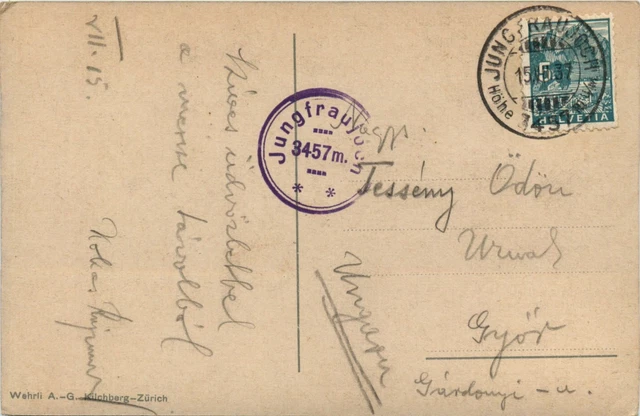 VII. 15.
Szíves üdvözlettel
a messze távolból
Jungfraujoch
3457 m.
JUNGFRAUJOCH
15.VII.37
Höhe 3457
HELVETIA
Nagys.
Tessény Ödön
Urnak
Győr
Gárdonyi - u.
Ungarn
Wehrli A.-G. Kilchberg-Zürich